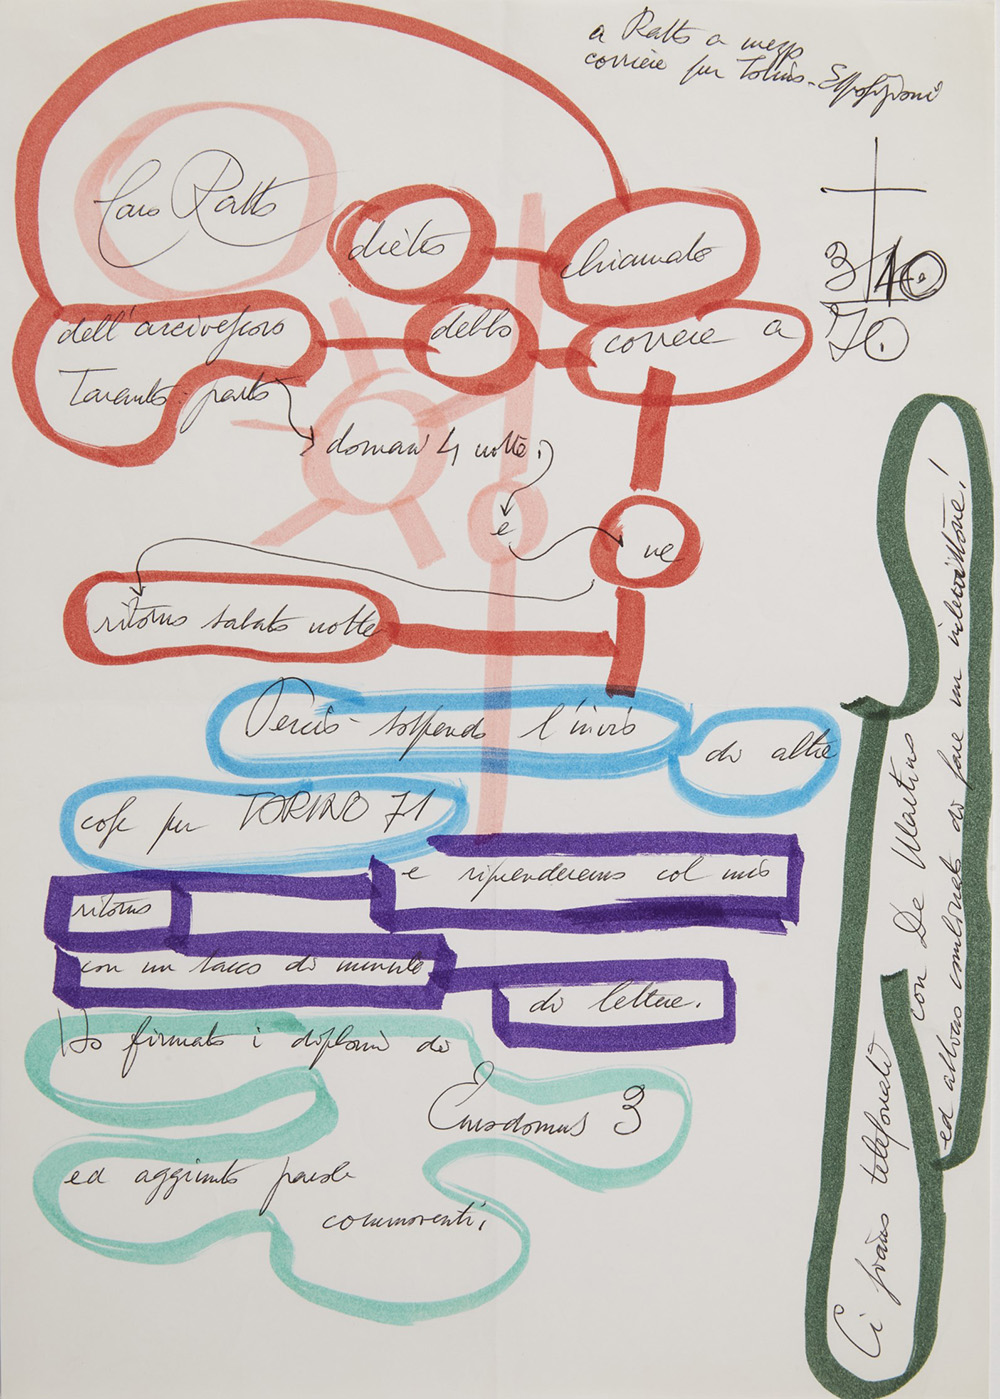 a Ratto a mezzo
corriere per Torino-Esposizioni
3/10
70.
Caro Ratto
dietro
chiamata
dell'arcivescovo
dello
correre a
Taranto - parto
domani 4 notte,
e
ne
ritorno sabato notte
Perciò - sospendo l'invio
di altre
cose per TORINO 71
e riprenderemo col mio
ritorno
con un sacco di minute
di lettere.
Ho firmato i diplomi di
Eurodomus 3
ed aggiunto parole
commoventi,
Ci siamo telefonati con De Martino
ed allora combinato di fare un incontrone!